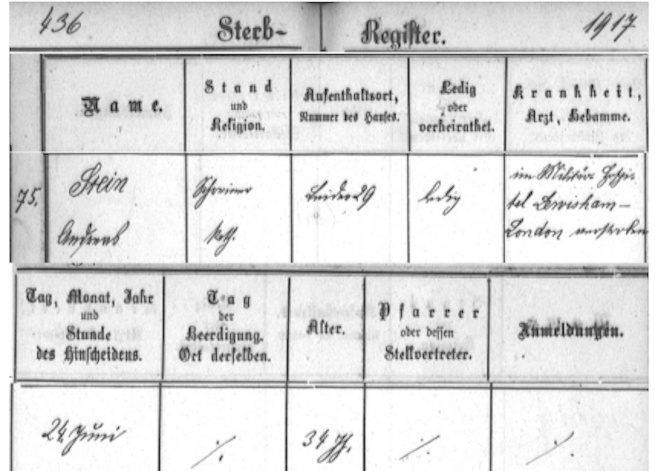 436 Sterb- Register. 1917
Name.
Stand
und
Religion.
Aufenthaltsort,
Nummer des Hauses.
Ledig
oder
verheirathet.
Krankheit,
Arzt, Hebamme.
75.
Stein
Andreas
Schreiner
kath.
29
ledig
im Militär Hospi-
tal Lewisham-
London verstorben
Tag, Monat, Jahr
und
Stunde
des Hinscheidens.
Tag
der
Beerdigung.
Ort derselben.
Alter.
Pfarrer
oder dessen
Stellvertreter.
Anmeldungen.
24. Juni
./.
34 J.
./.
./.